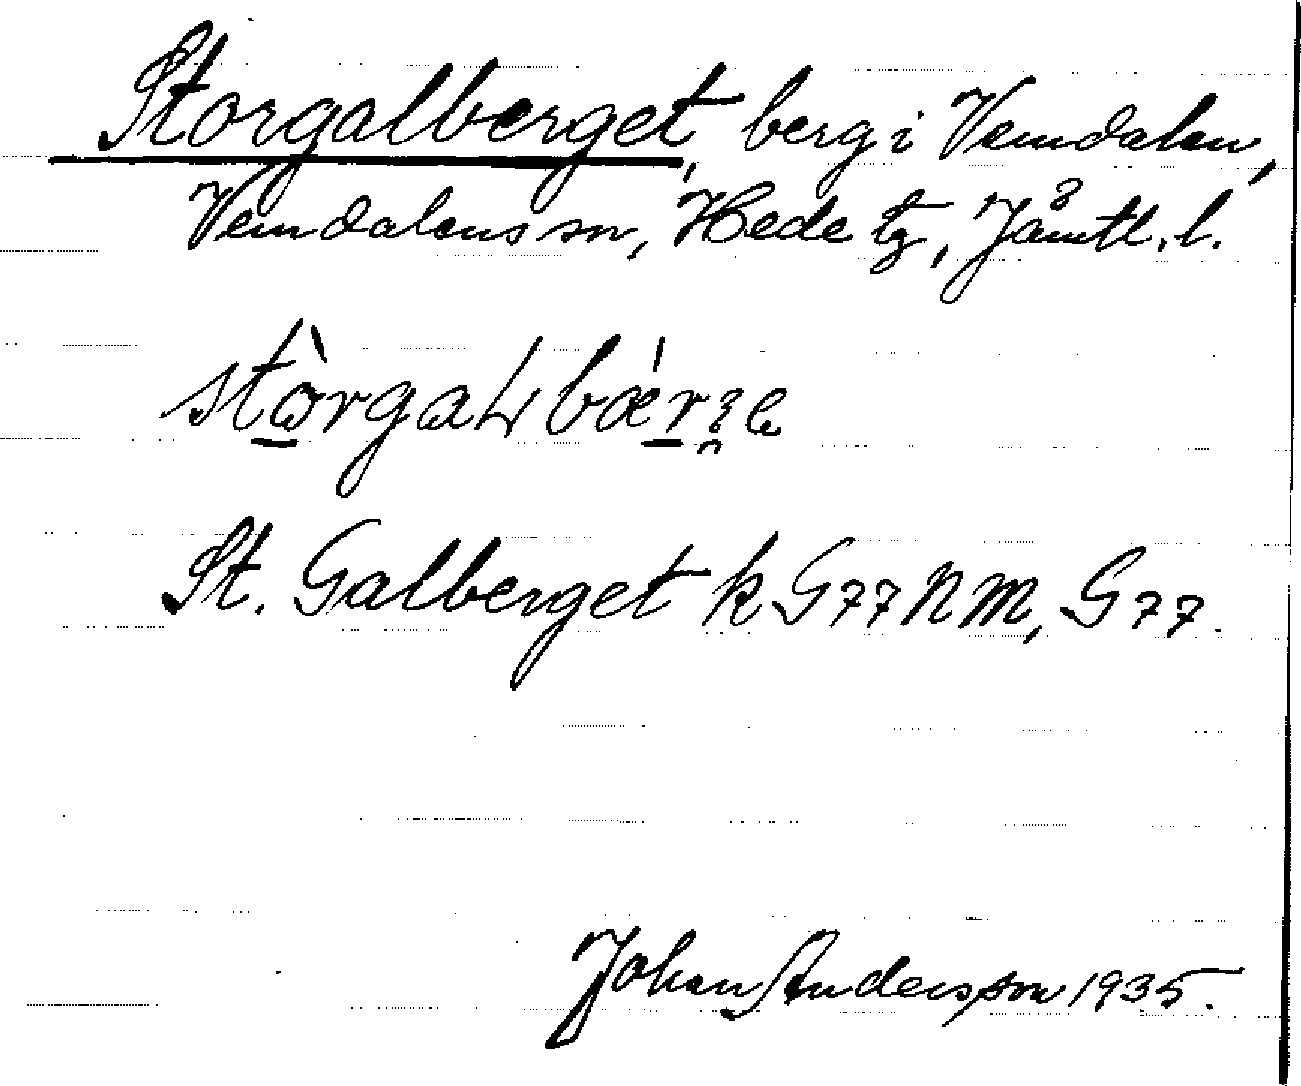 Storgalberget, berg i Vemdalen,
Vemdalens sn, Hede tg, Jämtl. l.
St. Galberget k G77 NM, G77.
Johan Andersson 1935.